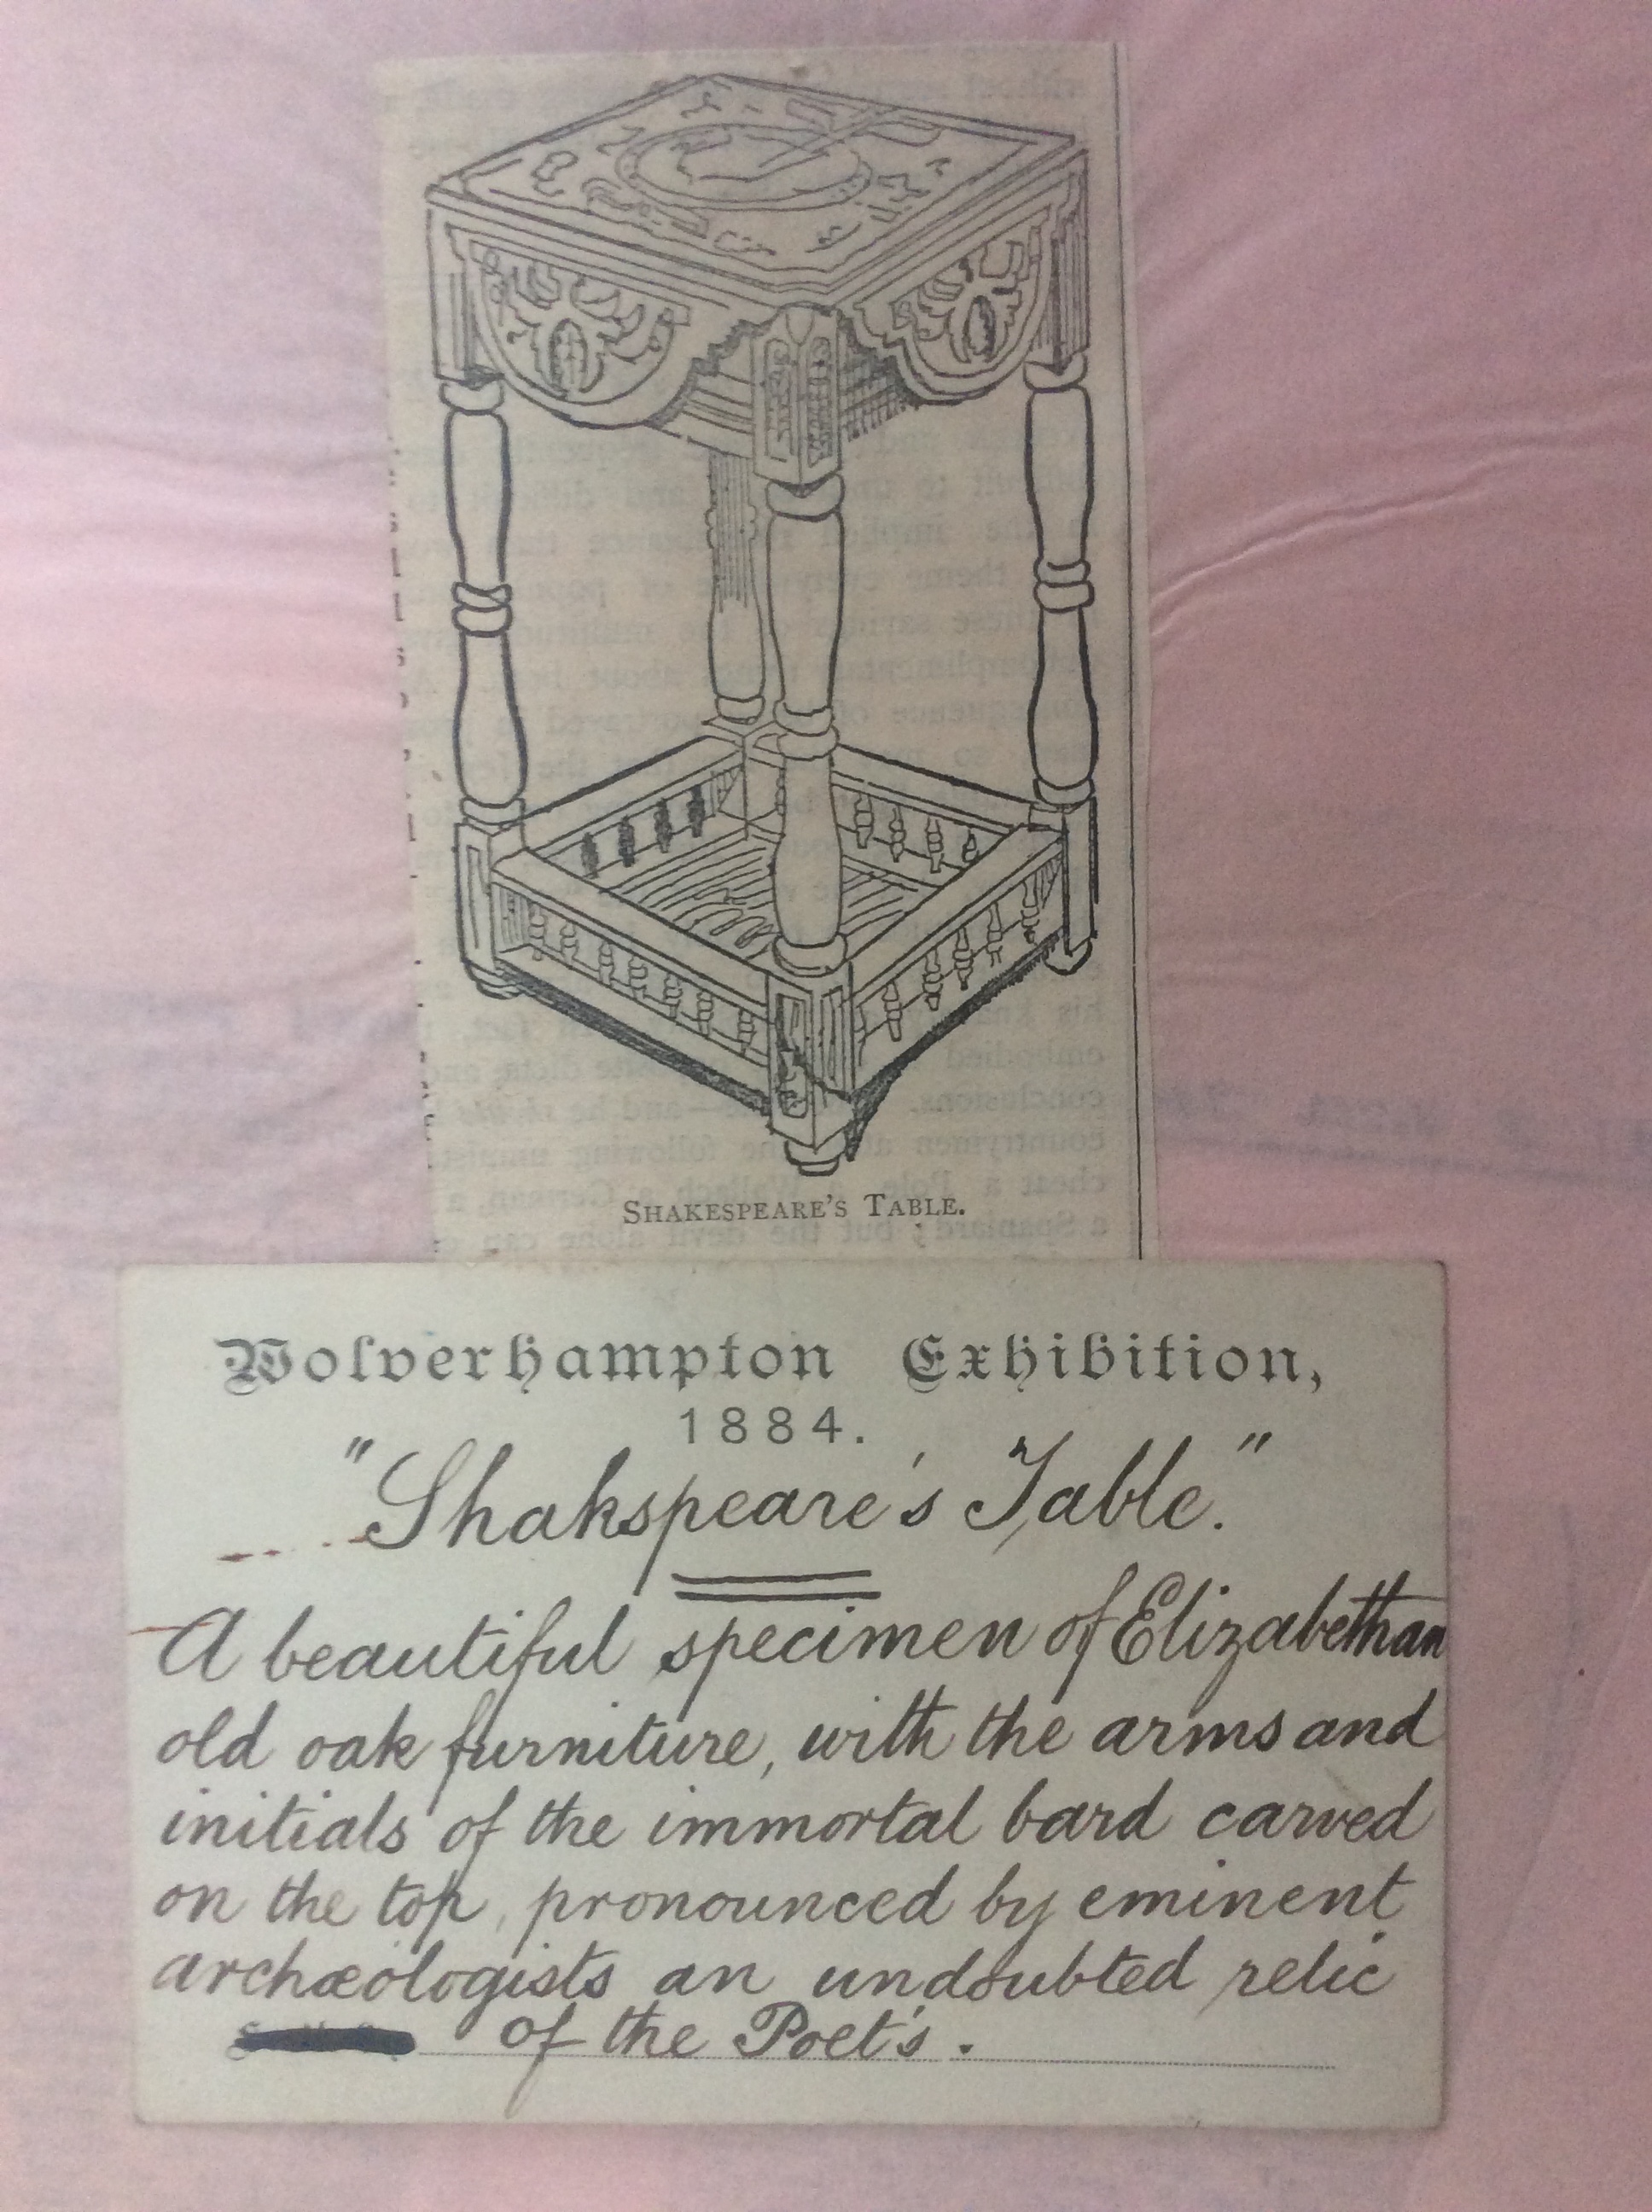 SHAKESPEARE'S TABLE.
Wolverhampton Exhibition,
1884.
"Shakspeare's Table."
A beautiful specimen of Elizabethan
old oak furniture, with the arms and
initials of the immortal bard carved
on the top, pronounced by eminent
archæologists an undoubted relic
of the Poet's.